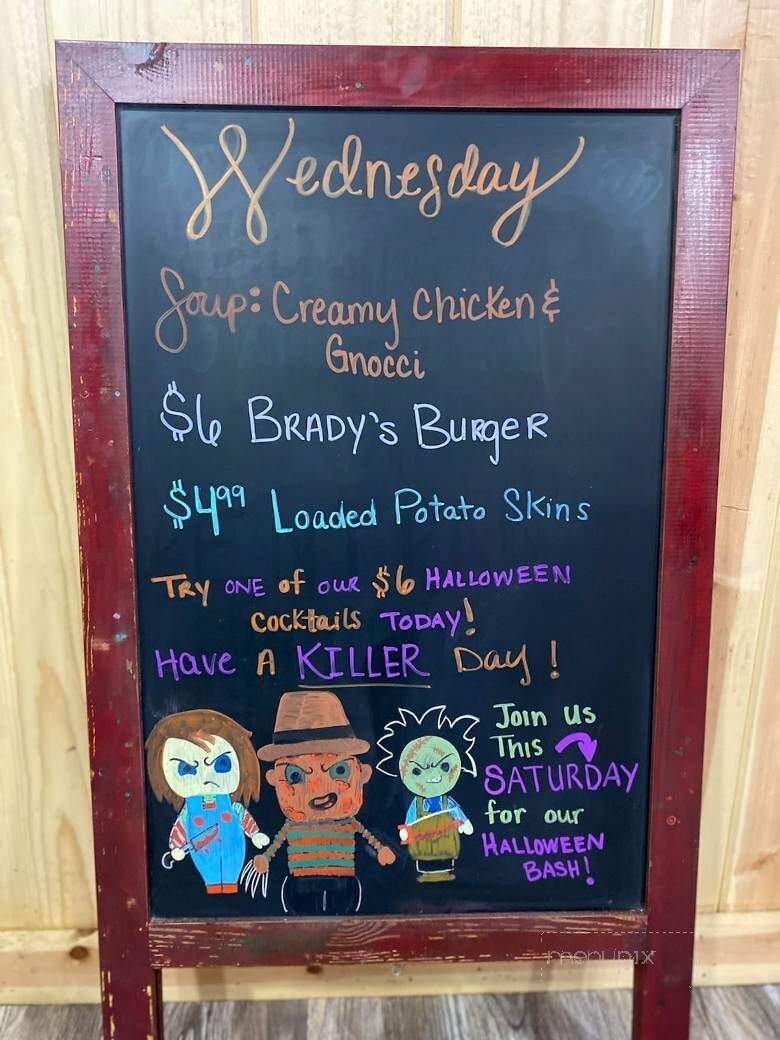 Wednesday
Soup: Creamy Chicken &
Gnocci
$6 BRADY's BURGER
$4.99 Loaded Potato Skins
TRY ONE of OUR $6 HALLOWEEN
Cocktails TODAY!
Have A KILLER Day !
Join us
This
SATURDAY
for our
HALLOWEEN
BASH!
menupix